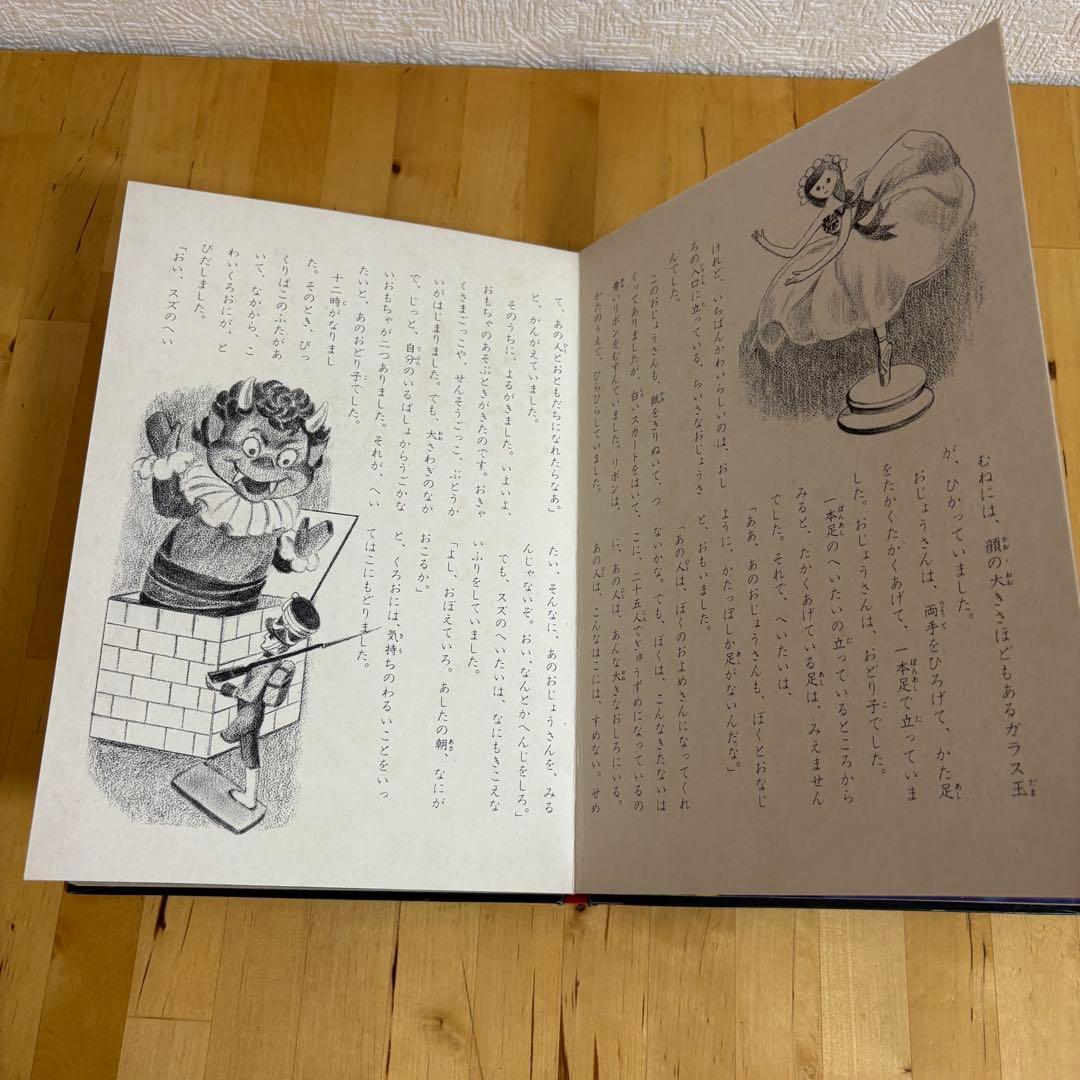 けれど、いちばんかわいらしいのは、おし
ろの入口に立っている、ちいさなおじょうさ
んでした。
このおじょうさんも、紙をきりぬいて、つ
くってありましたが、白いスカートをはいて、
青いリボンをむすんでいました。リボンは、
かたのうえで、ひらひらしていました。
むねには、顔の大きさほどもあるガラス玉
が、ひかっていました。
おじょうさんは、両手をひろげて、かた足
をたかくたかくあげて、一本足で立っていま
した。おじょうさんは、おどり子でした。
一本足のへいたいの立っているところから
みると、たかくあげている足は、みえません
でした。それで、へいたいは、
「ああ、あのおじょうさんも、ぼくとおなじ
ように、かたっぽしか足がないんだな」
と、おもいました。
「あの人は、ぼくのおよめさんになってくれ
ないかな。でも、ぼくは、こんなきたないは
こに、二十五人でぎゅうずめになっているの
に、あの人は、あんな大きなおしろにいる。
あの人は、こんなはこには、すめない。せめ
て、あの人とおともだちになれたらなあ」
と、かんがえていました。
そのうちに、よるがきました。いよいよ、
おもちゃのあそぶときがきたのです。おきゃ
くさまごっこや、せんそうごっこ、ぶとうか
いがはじまりました。でも、大さわぎのなか
で、じっと、自分のいるばしょからうごかな
いおもちゃが二つありました。それが、へい
たいと、あのおどり子でした。
十二時がなりまし
た。そのとき、びっ
くりばこのふたがあ
いて、なかから、こ
わいくろおにが、と
びだしました。
「おい、スズのへい
たい、そんなに、あのおじょうさんを、みる
んじゃないぞ。おい、なんとかへんじをしろ。」
でも、スズのへいたいは、なにもきこえな
いふりをしていました。
「よし、おぼえていろ。あしたの朝、なにが
おこるか。」
と、くろおには、気持ちのわるいことをいっ
てはこにもどりました。